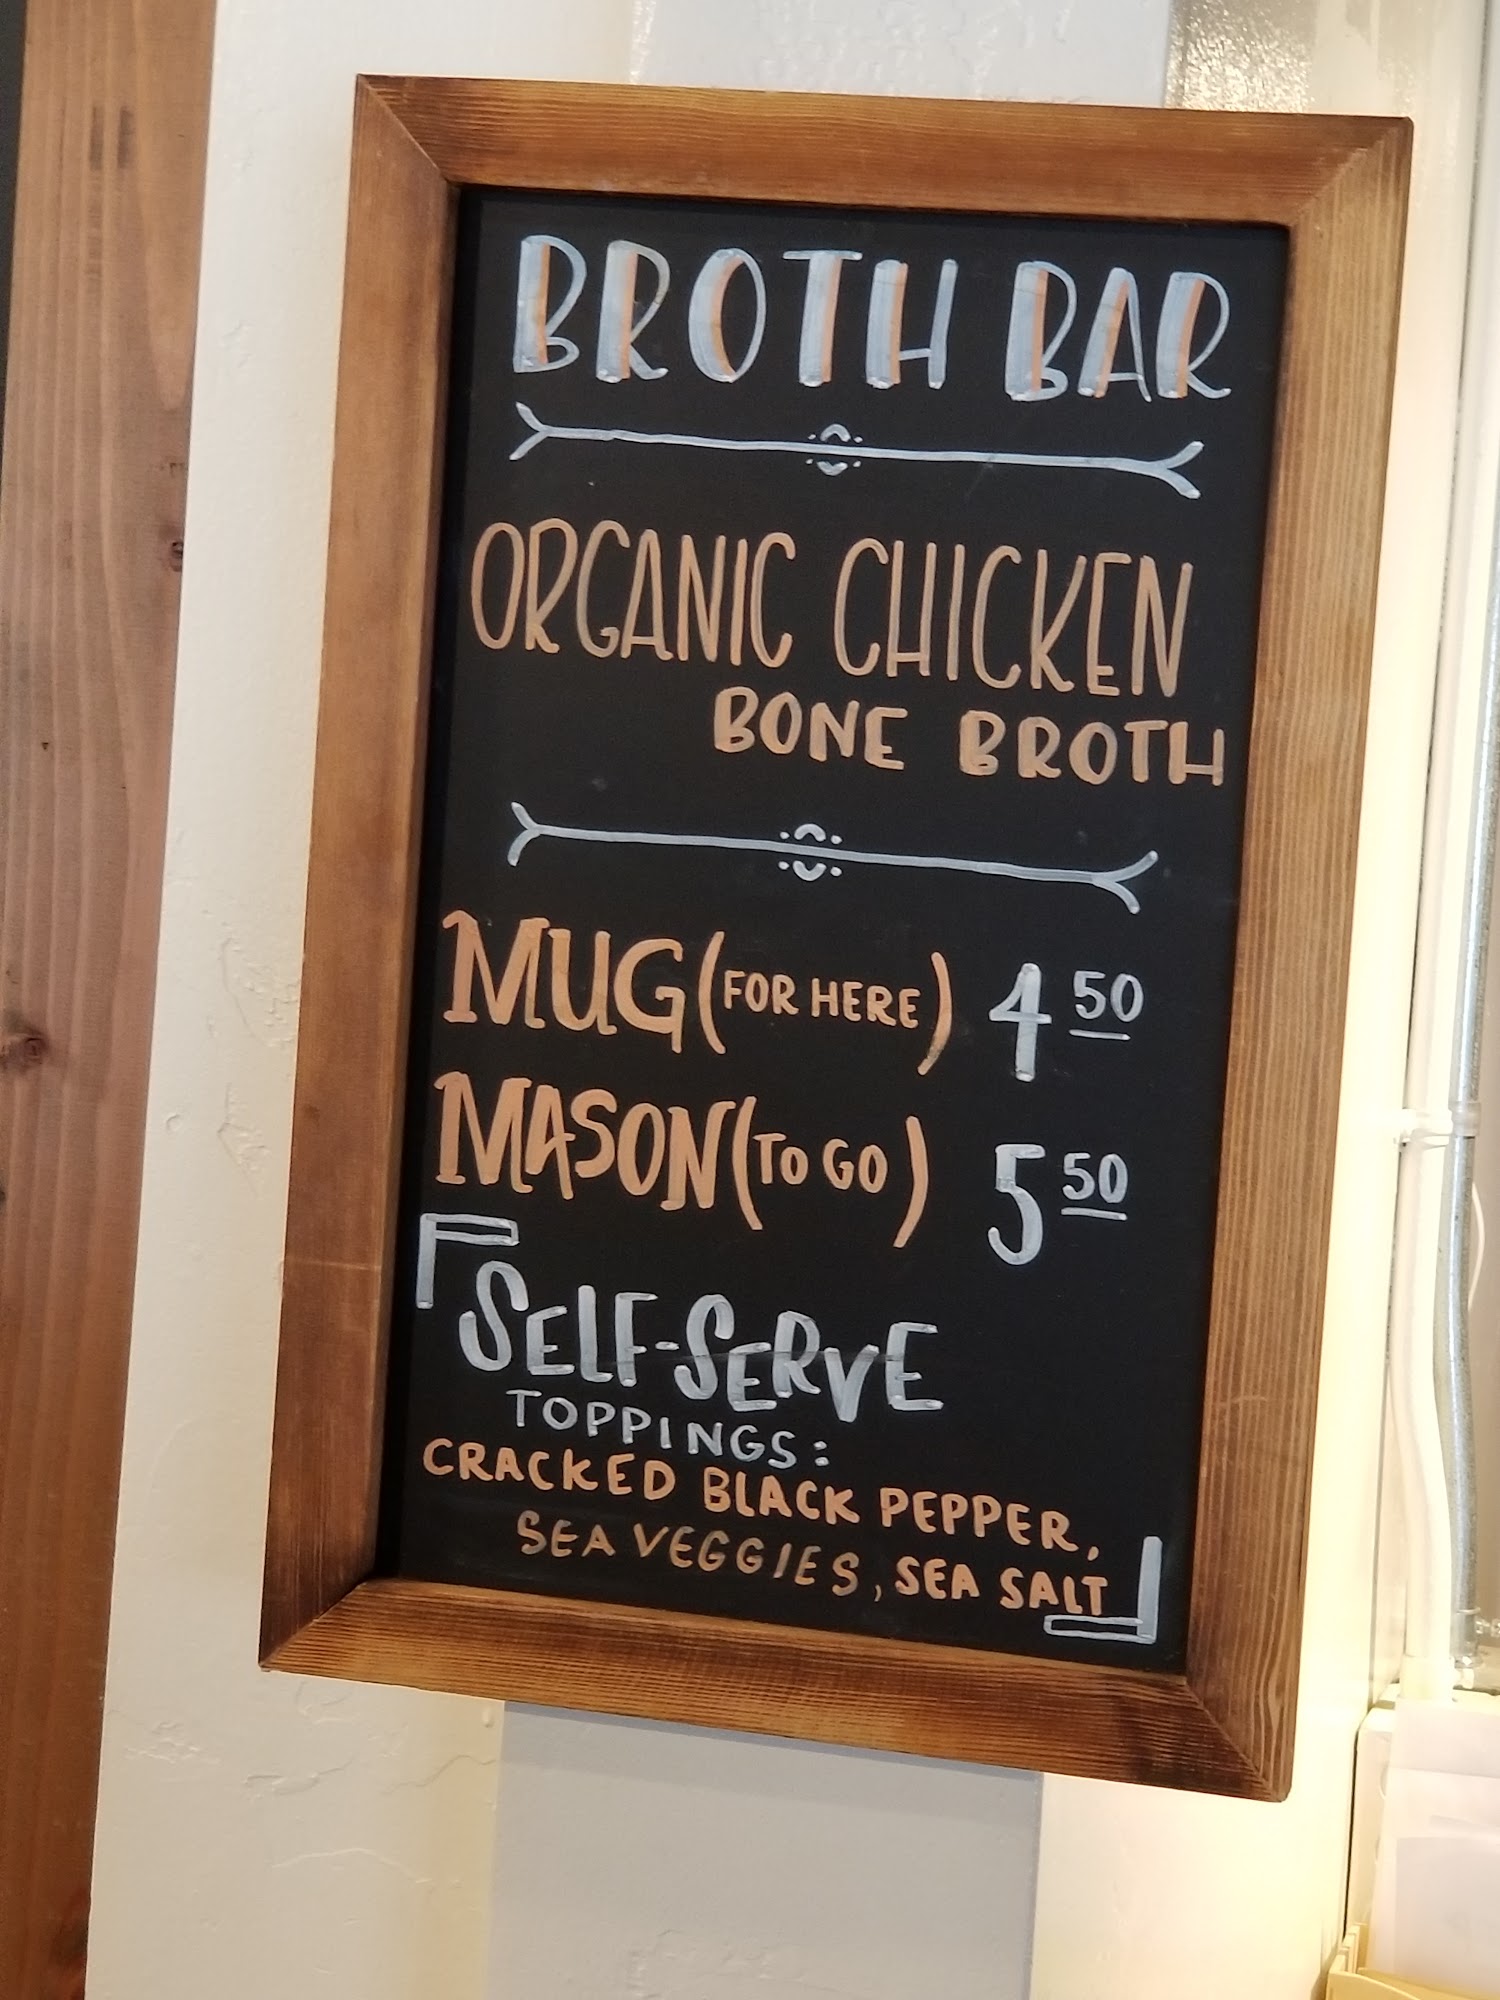 BROTH BAR
ORGANIC CHICKEN
BONE BROTH
MUG (FOR HERE) 4 50
MASON (TO GO) 5 50
SELF-SERVE
TOPPINGS:
CRACKED BLACK PEPPER,
SEA VEGGIES, SEA SALT